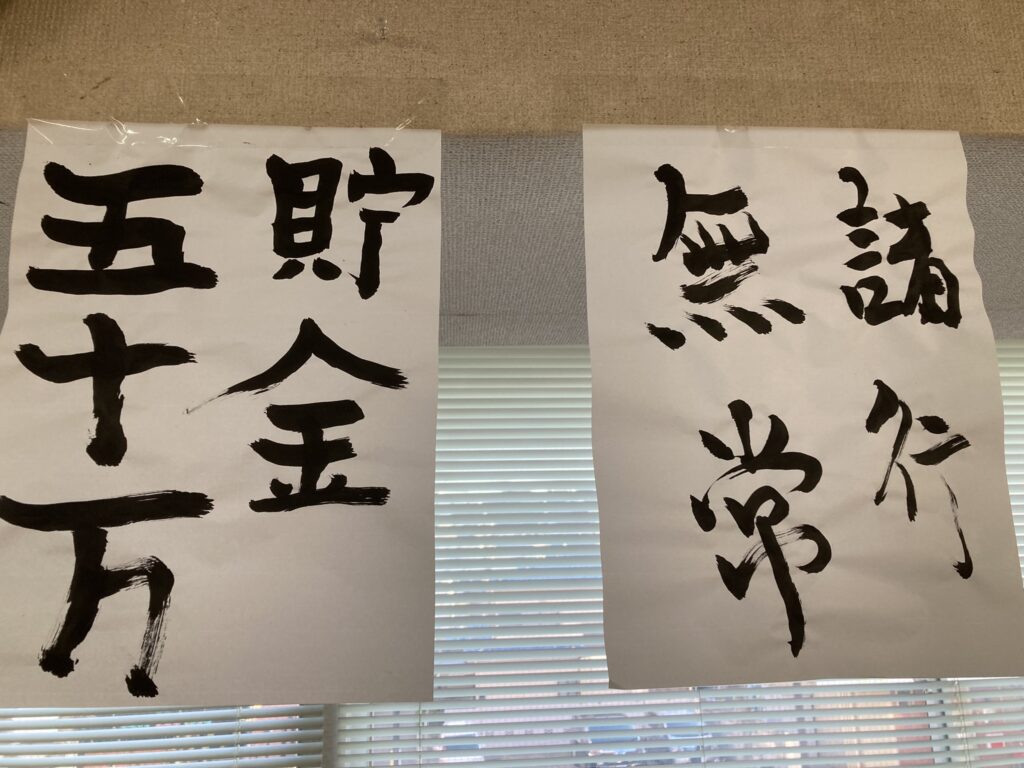 諸行
無常
貯金
五十万